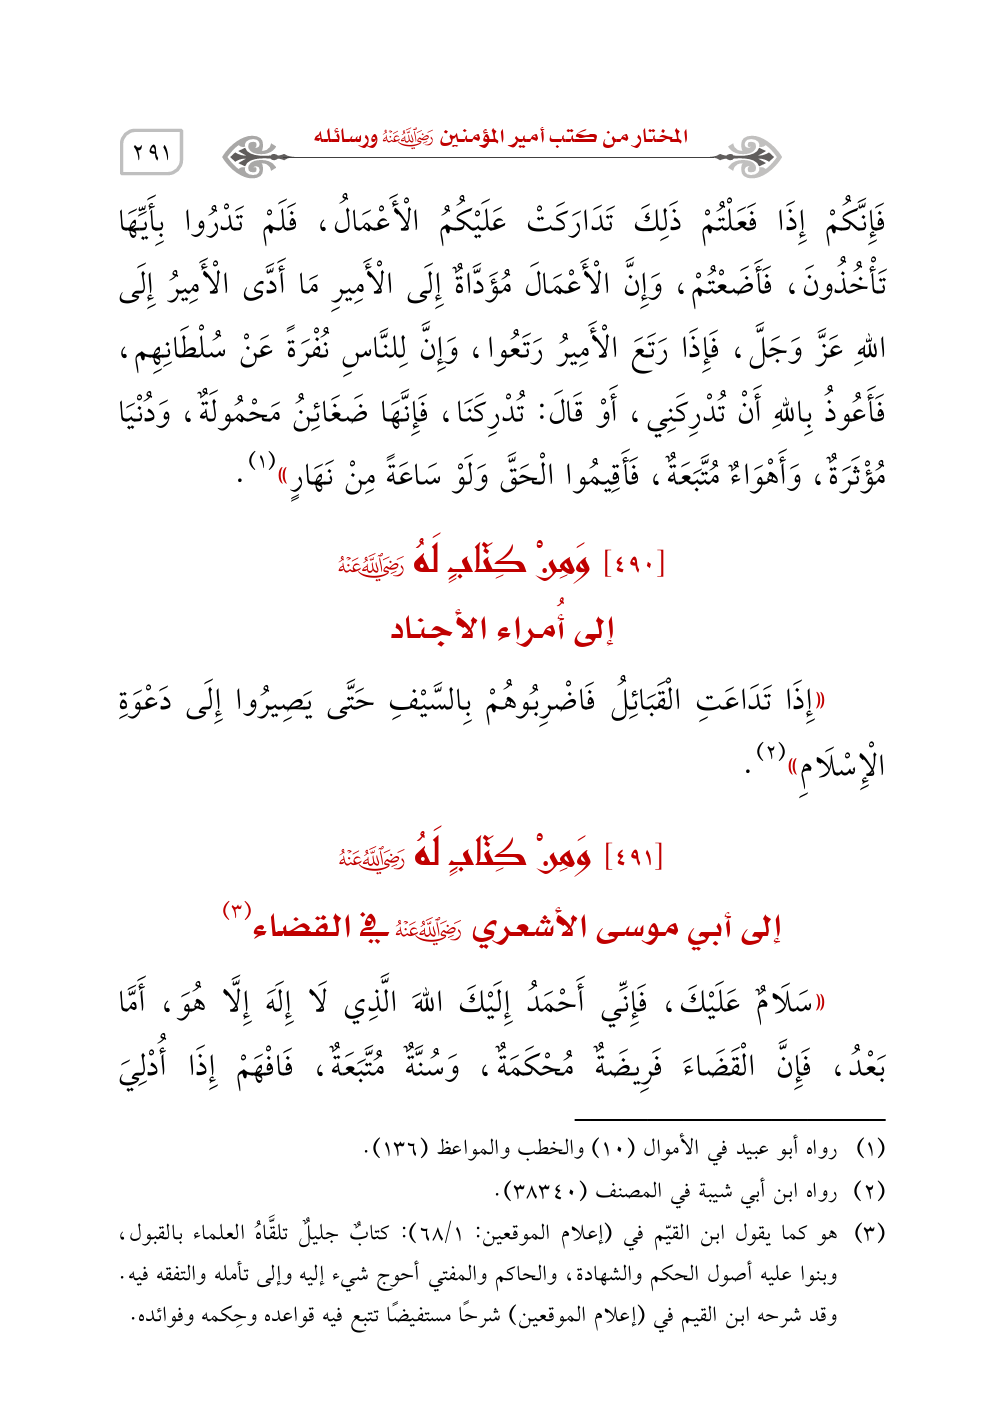 المختار من كتب أمير المؤمنين رَضِيَ اللَّهُ عَنْهُ ورسائله
٢٩١
فَإِنَّكُمْ إِذَا فَعَلْتُمْ ذَلِكَ تَدَارَكَتْ عَلَيْكُمُ الْأَعْمَالُ، فَلَمْ تَدْرُوا بِأَيِّهَا
تَأْخُذُونَ، فَأَضَعْتُمْ، وَإِنَّ الْأَعْمَالَ مُؤَدَّاةٌ إِلَى الْأَمِيرِ مَا أَدَّى الْأَمِيرُ إِلَى
اللهِ عَزَّ وَجَلَّ، فَإِذَا رَتَعَ الْأَمِيرُ رَتَعُوا، وَإِنَّ لِلنَّاسِ نُفْرَةً عَنْ سُلْطَانِهِم،
فَأَعُوذُ بِاللهِ أَنْ تُدْرِكَنِي، أَوْ قَالَ: تُدْرِكَنَا، فَإِنَّهَا ضَغَائِنُ مَحْمُولَةٌ، وَدُنْيَا
مُؤْثَرَةٌ، وَأَهْوَاءٌ مُتَّبَعَةٌ، فَأَقِيمُوا الْحَقَّ وَلَوْ سَاعَةً مِنْ نَهَارٍ»(١).
[٤٩٠] وَمِنْ كِتَابٍ لَهُ رَضِيَ اللَّهُ عَنْهُ
إلى أُمراء الأجناد
«إِذَا تَدَاعَتِ الْقَبَائِلُ فَاضْرِبُوهُمْ بِالسَّيْفِ حَتَّى يَصِيرُوا إِلَى دَعْوَةِ
الْإِسْلَامِ»(٢).
[٤٩١] وَمِنْ كِتَابٍ لَهُ رَضِيَ اللَّهُ عَنْهُ
إلى أبي موسى الأشعري رَضِيَ اللَّهُ عَنْهُ في القضاء(٣)
«سَلَامٌ عَلَيْكَ، فَإِنِّي أَحْمَدُ إِلَيْكَ اللهَ الَّذِي لَا إِلَهَ إِلَّا هُوَ، أَمَّا
بَعْدُ، فَإِنَّ الْقَضَاءَ فَرِيضَةٌ مُحْكَمَةٌ، وَسُنَّةٌ مُتَّبَعَةٌ، فَافْهَمْ إِذَا أُدْلِيَ
(١) رواه أبو عبيد في الأموال (١٠) والخطب والمواعظ (١٣٦).
(٢) رواه ابن أبي شيبة في المصنف (٣٨٣٤٠).
(٣) هو كما يقول ابن القيّم في (إعلام الموقعين: ٦٨/١): كتابٌ جليلٌ تلقَّاهُ العلماء بالقبول،
وبنوا عليه أصول الحكم والشهادة، والحاكم والمفتي أحوج شيء إليه وإلى تأمله والتفقه فيه.
وقد شرحه ابن القيم في (إعلام الموقعين) شرحًا مستفيضًا تتبع فيه قواعده وحِكمه وفوائده.